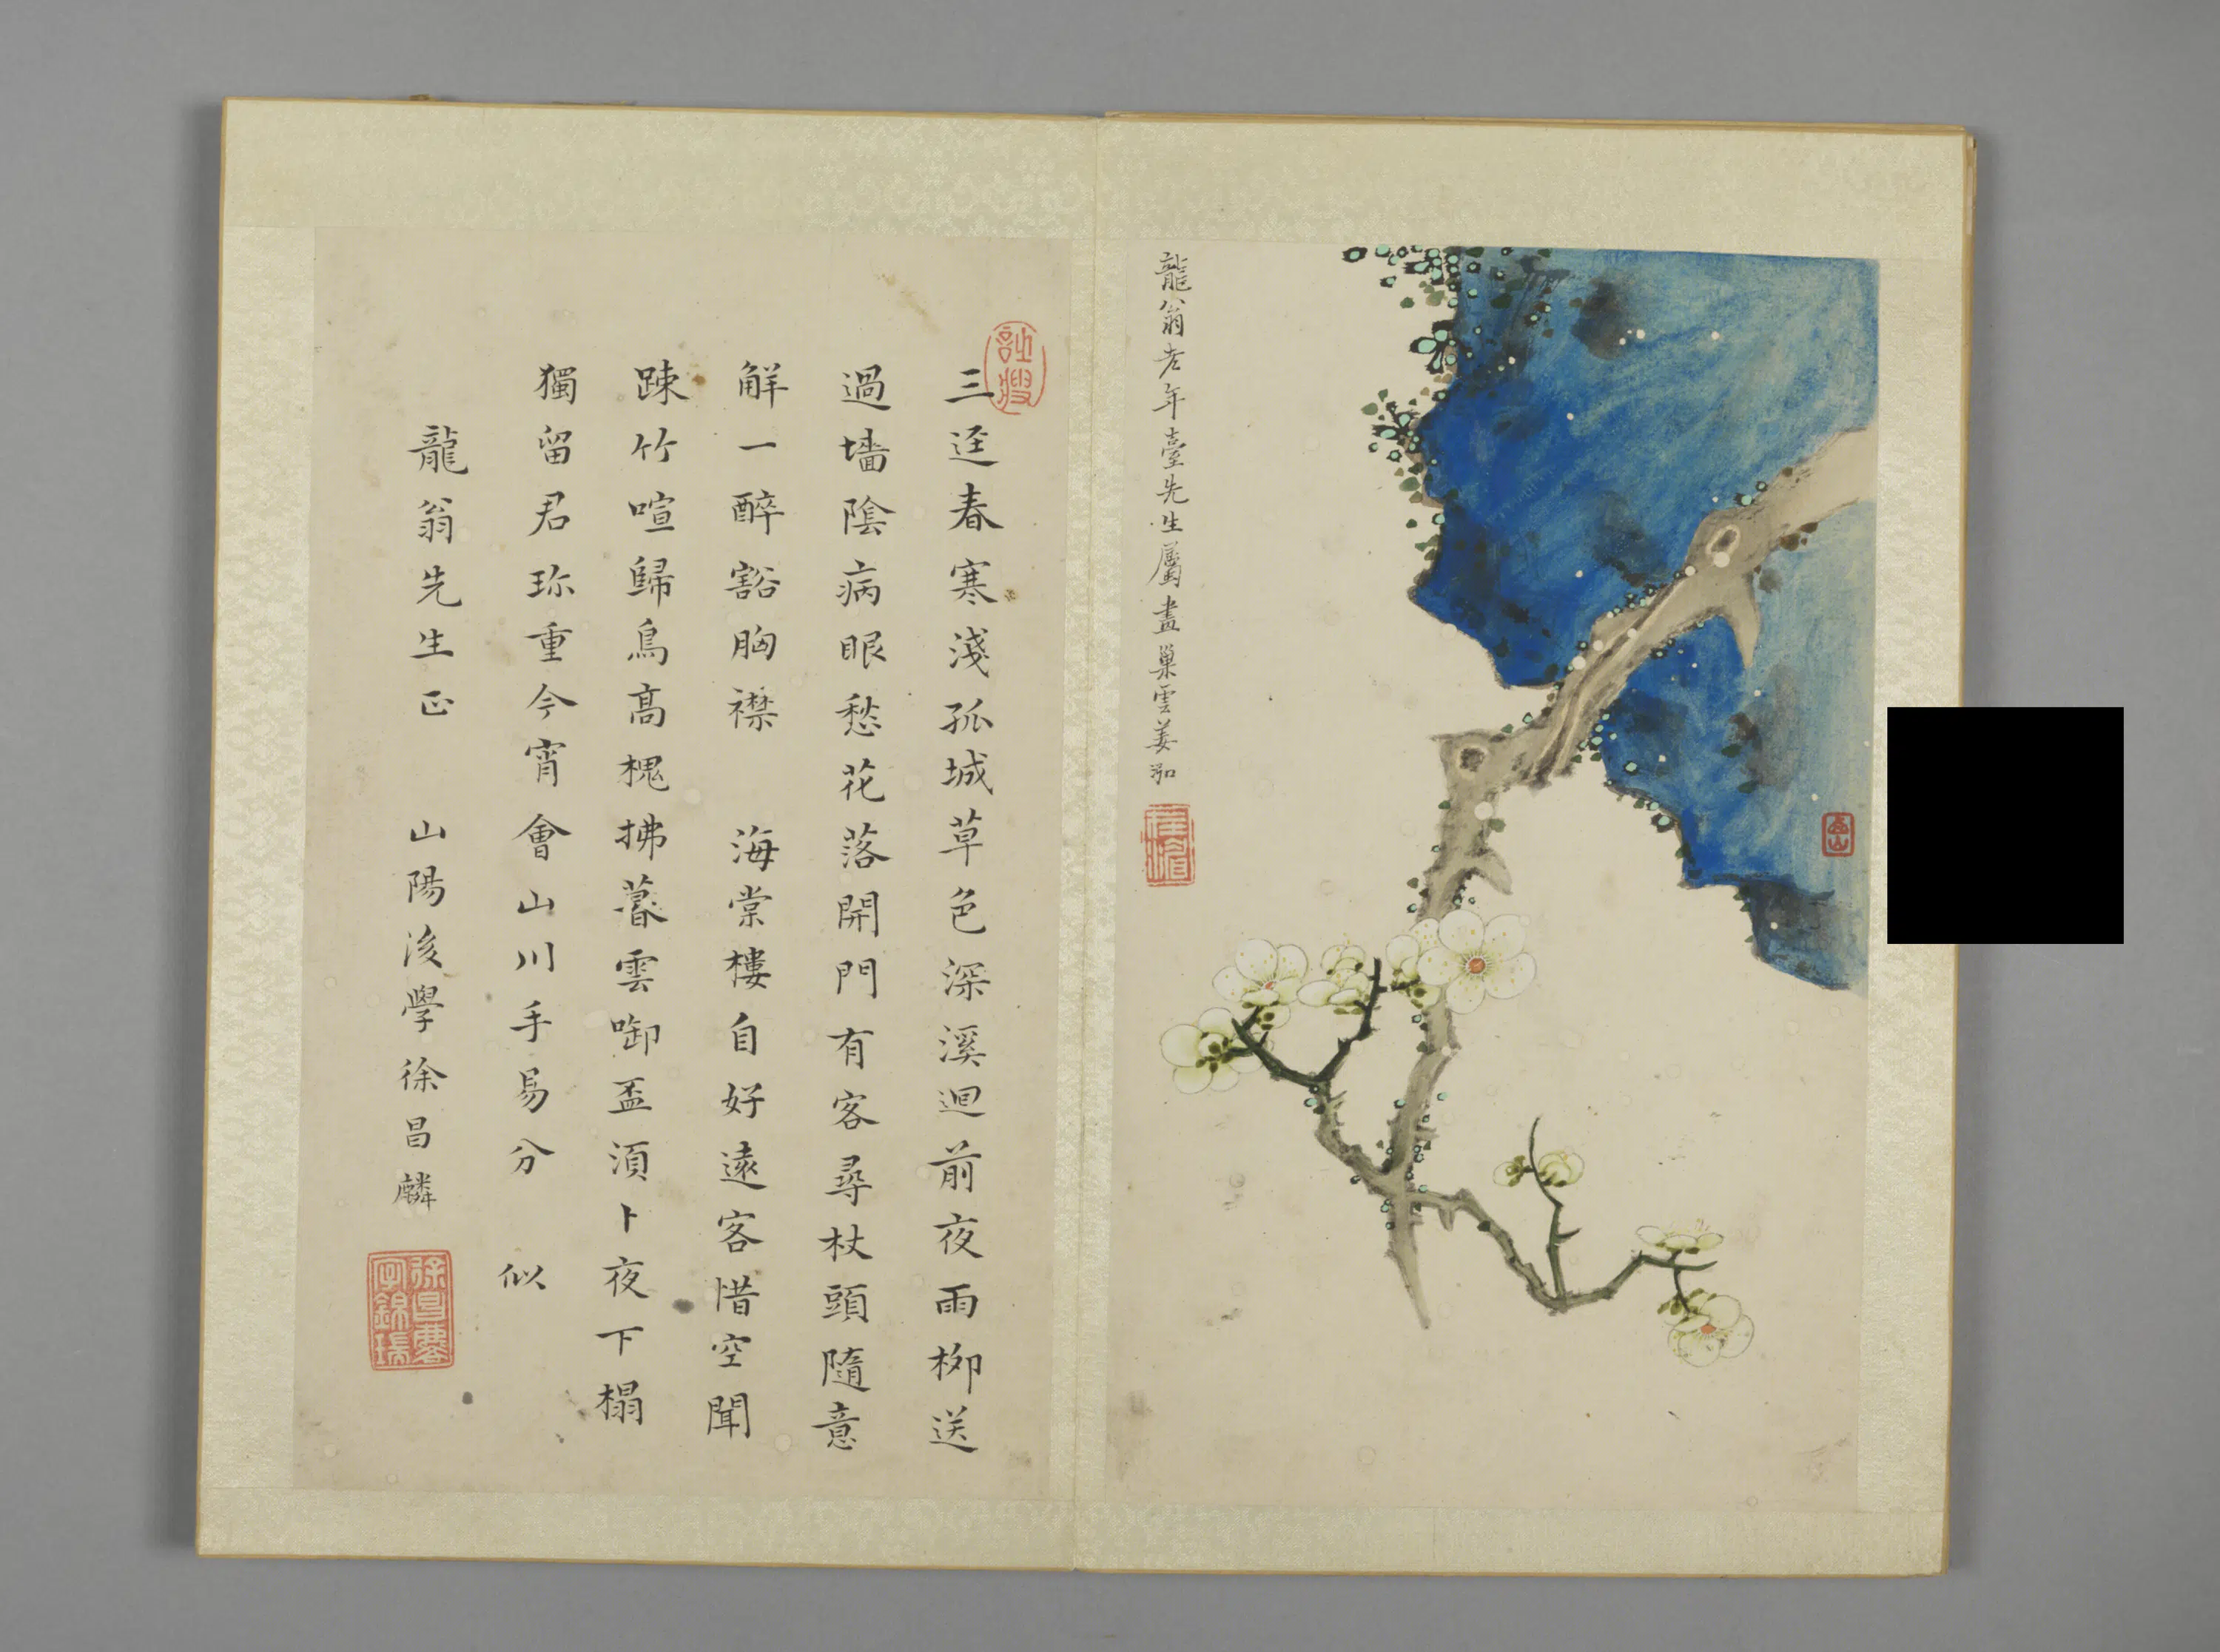 龍翁老年臺先生屬畫巢雲姜泓
三逕春寒淺孤城草色深溪迴前夜雨栁送
過墻陰病眼愁花落開門有客尋杖頭隨意
觧一醉豁胸襟 海棠樓自好遠客惜空聞
踈竹喧歸鳥高槐拂暮雲啣盃湏卜夜下榻
獨留君珎重今宵會山川手易分 似
龍翁先生正 山陽後學徐昌麟